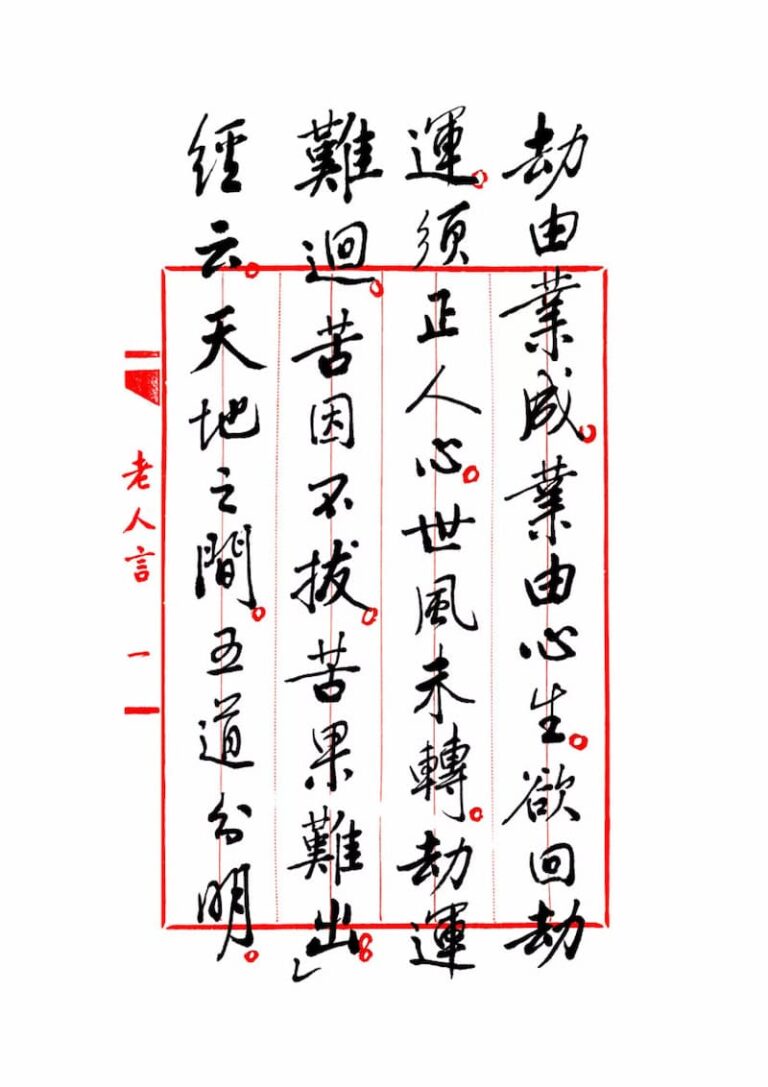 劫由業成。業由心生。欲回劫
運。須正人心。世風未轉。劫運
難迴。苦因不拔。苦果難出。」
經云。天地之間。五道分明。
老人言 一